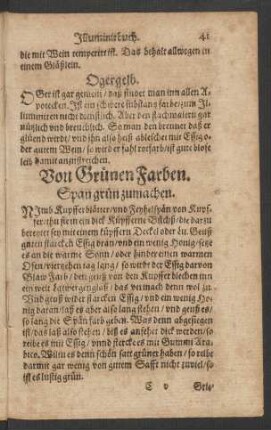 Illuminirbuch. 41
die mit Wein temperirt ist. Das behalt allwegen in
einem Gläßlein.
Ogergelb.
OGer ist gar gemein / daß findet man inn allen A-
potecken. Ist ein schwere substantz
nützlich und breuchlich. So man den brennet daß er
glüend wirdt / und ihn also heiß ableschet mit Essig o-
der gutem Wein / so wird er fahl rotfarb / ist gute blose
len damit anzustreichen.
Von Grünen Farben.
Span grün zumachen.
NJmb Kupffer blätter / und Feyhelspän von Kupf-
fer / thu sie in ein dick Küpfferin die darzu
bereitet sey mit einem küpffern Deckel oder
guten starcken Essig dran / und ein wenig Honig / setze
es an die warme Sonn / oder hinder einen warmen
Ofen / viertzehen tag lang / so wirdt der Essig darvon
Blaw farb / den geuß von den Kupffer blechen inn
ein weit das vermach denn wol zu.
Und geuß wider starcken Essig / und ein wenig Ho-
nig daran / laß es aber also lang stehen / und geuß es /
so lang die Spän farb geben. Was denn abgesiegen
ist / das laß also stehen / biß es ansehet dick werden / so
reibe es mit Essig / unnd stercke es mit Gummi Ara-
bico. Wiltu es denn schön satt grüner haben / so reibe
darmit gar wenig von gutem Safft nicht zuviel / so
ist es lustig grün.
C v Gele-